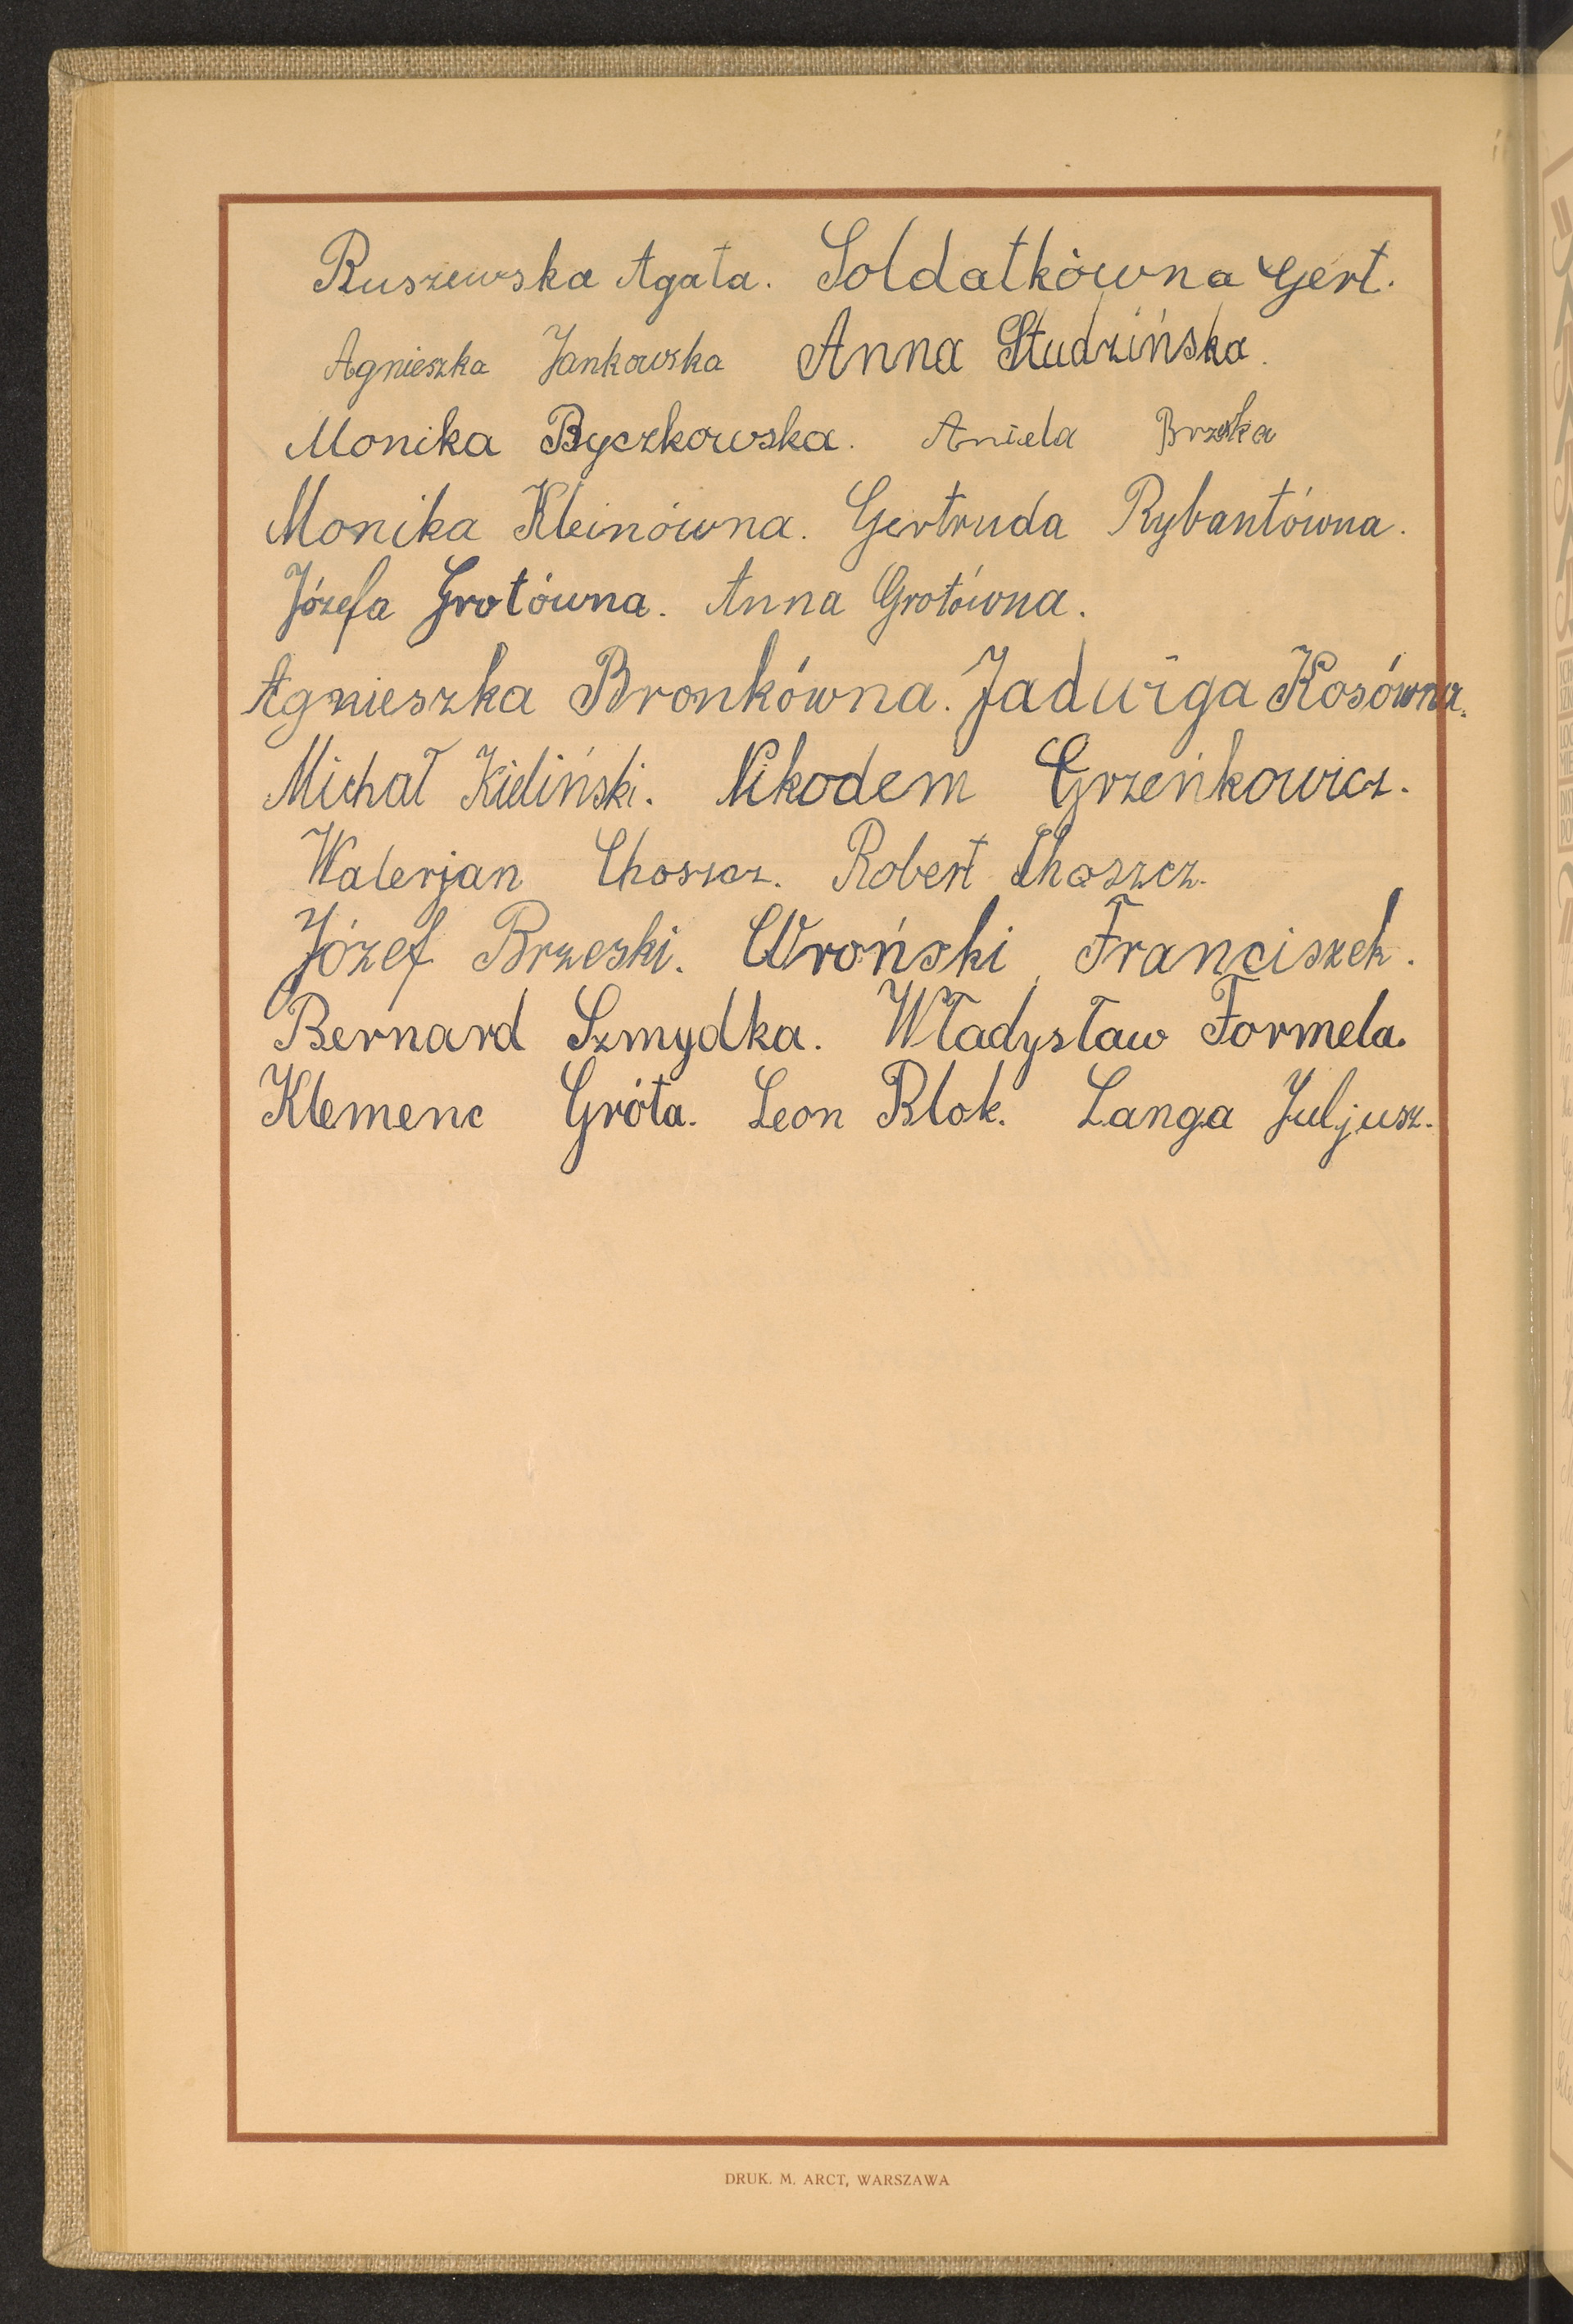 Ruszewska Agata. Soldatkówna Gert.
Agnieszka Jankowska Anna Studzińska.
Monika Byczkowska. Aniela Brzeska
Monika Kleinówna. Gertruda Rybantówna.
Józefa Grotówna. Anna Grotówna.
Agnieszka Bronkówna. Jadwiga Kosówna.
Michał Kieliński. Nikodem Grzeńkowicz.
Walerjan Choszcz. Robert Choszcz.
Józef Brzeski. Wroński Franciszek.
Bernard Szmydka. Władysław Formela.
Klemenc Gróta. Leon Blok. Langa Juljusz.
DRUK. M. ARCT, WARSZAWA